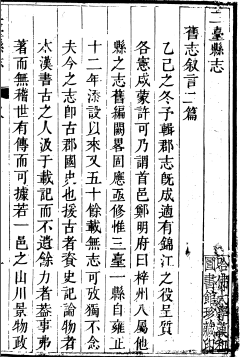 三臺縣志
舊志叙言二篇
乙己之冬予輯郡志既成適有錦江之役呈質
各憲咸蒙許可乃謂首邑鄭明府曰梓州八屬他
縣之志舊編闕略固應亟修惟三臺一縣自雍正
十二年添設以來又五十餘載無志可攷獨不念
夫今之志卽古郡國史也援古者資史記論物者
本漢書古之人汲于載記而不遺餘力者蓋事弗
著而無稽世有傳而可據若一邑之山川景物政
圖書館珍藏印